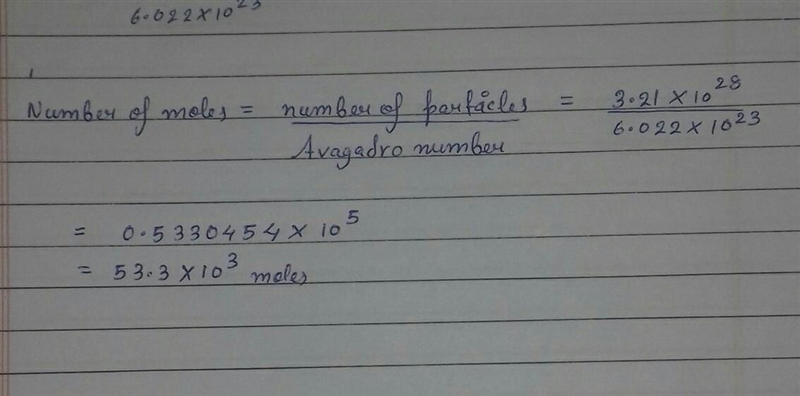 6.022×10²³
Number of moles = number of particles = 3.21 × 10²⁸
Avagadro number 6.022 × 10²³
= 0.5330454 × 10⁵
= 53.3 × 10³ moles